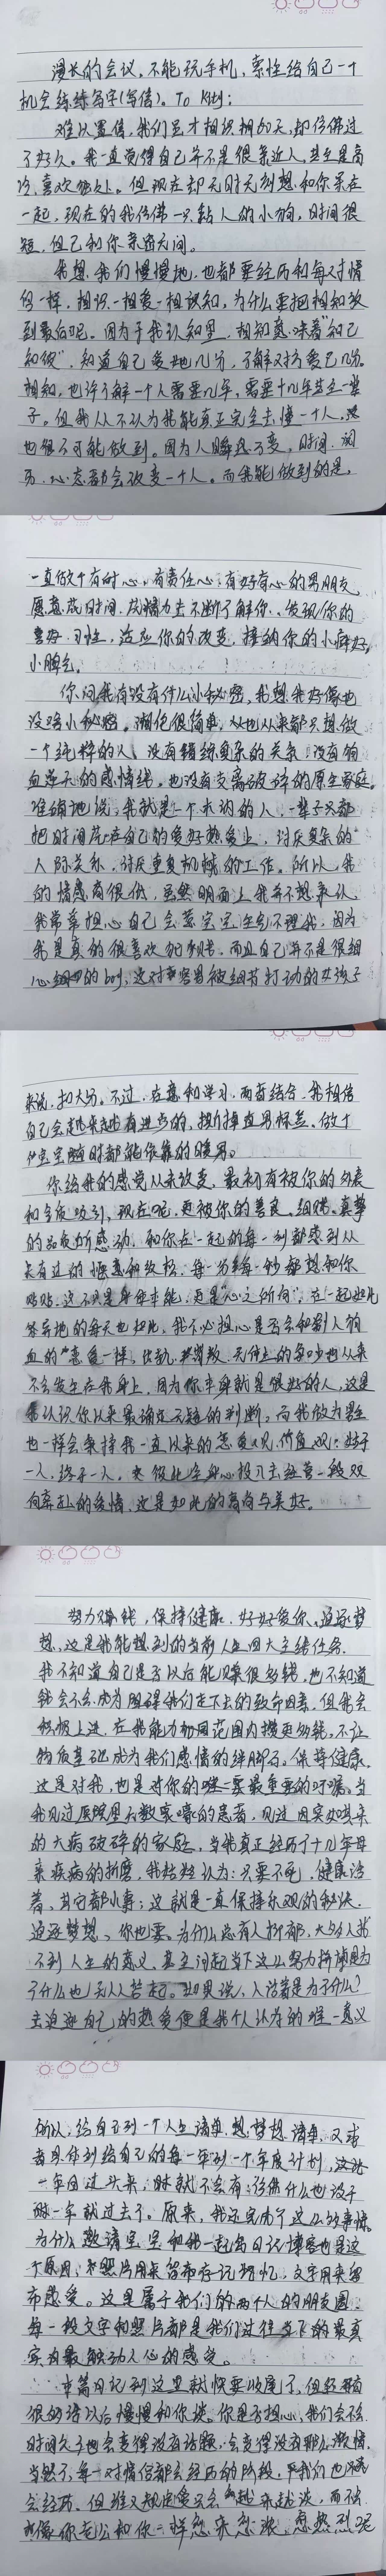 漫长的会议，不能玩手机，索性给自己一个
机会练练写字(写信)。To Kitty:
难以置信，我们虽才相识 天，却仿佛过
了好久。我一直觉得自己并不是很亲近人，甚至是高
冷，喜欢独处。但现在却无时无刻想和你呆在
一起，现在的我仿佛一只黏人的小狗，时间很
短，但已和你亲密无间。
我想，我们慢慢地，也都要经历和每对情
侣一样，相识-相爱-相识知，为什么要把相知放
到最后呢。因为于我认知里，相知意味着"知己
知彼"，知道自己爱她几分，了解对方爱己几分。
相知，也许了解一个人需要几年，需要十几年甚至一辈
子。但我从不认为我能真正完全去懂一个人，
也很不可能做到。因为人瞬息万变，时间、阅
历、心态都会改变一个人。而我能做到的是，
一直做个有耐心，有责任心，有好奇心的男朋友，
愿意花时间，花精力去不断了解你，发现你的
喜好、习性，适应你的改变，接纳你的小癖好，
小脾气。
你问我有没有什么小秘密，我想我好像也
没啥小秘密。 很简单，从也从来都只想做
一个纯粹的人，没有错综复杂的关系，没有狗
血连天的感情线，也没有支离破碎的原生家庭。
准确地说，我就是一个木讷的人，一辈子只都
把时间花在自己的爱好热爱上，讨厌复杂的
人际关系，讨厌重复机械的工作。所以，我
的情感商很低，虽然明面上我并不想承认。
我常常担心自己会惹宝宝生气不理我，因为
我是真的很喜欢 ，而且自己并不是很细
心 的boy，这对容易被细节打动的女孩子
来说，扣大分。不过，在意和学习，两者结合，我相信
自己会越来越有进步的，撕掉直男标签。做个
宝宝随时都能依靠的暖男。
你给我的感觉从未改变，最初有被你的外表
和气质吸引，现在呢，更被你的善良、细腻、真挚
的品质所感动，和你在一起的每一刻都感到从
未有过的惬意和放松，每一分每一秒都想和你
贴贴，这不只是身体本能，更是"心之所向"，在一起如此
等异地的每天也如此，我不必担心是否会和别人狗
血的"恋爱一样，出轨， ，无休止的争吵也从来
不会发生在我身上，因为你本身就是很好的人，这是
我认识你以来最确定无疑的判断。而我做为男生
也一样会秉持我一直以来的恋爱观、价值观：始于
一人，终于一人。 彼此全身心投入去经营一段双
向奔赴的爱情，这是如此的高尚与美好。
努力赚钱，保持健康，好好爱你，追逐梦
想，这是我能想到的当前人生四大主线任务。
我不知道自己是否以后能 很多钱，也不知道
钱会不会成为阻碍我们走下去的致命因素，但我会
积极上进，在我能力 范围内攒更多钱，不让
物质基础成为我们感情的绊脚石。保持健康，
这是对我，也是对你的唯一要最重要的叮嘱。当
我见过医院里无数哀嚎的患者，见过因突如其来
的大病破碎的家庭，当我真正经历了十几年母
亲疾病的折磨，我始终认为：只要不死，健康活
着，其它都小事；这就是一直保持乐观的秘诀。
追逐梦想，你也要，为什么总有人抑郁，大多人找
不到人生的意义，甚至问起当下这么努力拼搏是为
了什么也无从答起。如果说，人活着是为了什么？
去追逐自己的热爱便是我个人认为的唯一意义
所以，给自己列一个人生清单，想梦想清单，又或
者具体到给自己的每一年列一个年度计划，
一年回过头来，瞅就不会有：诶我什么也没干
呢一年就过去了。原来，我还完成了这么多事情。
为什么邀请宝宝和我一起写日记博客也是这
个原因：照片用来留存记忆，文字用来留
存感受。这是属于我们的两个人的朋友圈，
每一段文字和照片都是我们过往生活的最真
实的最触动人心的感受。
本篇日记到这里就快要收尾了，但我 有
很多话以后慢慢和你谈。你是否担心，我们会不会
时间久了也会变得没有话题，会变得没有那么激情，
当然了，每一对情侣都会经历的阶段，我们也许
会经历，但谁又规定爱只会 越来越淡，而不
像你老公和你一样愈来愈浓，愈热烈呢